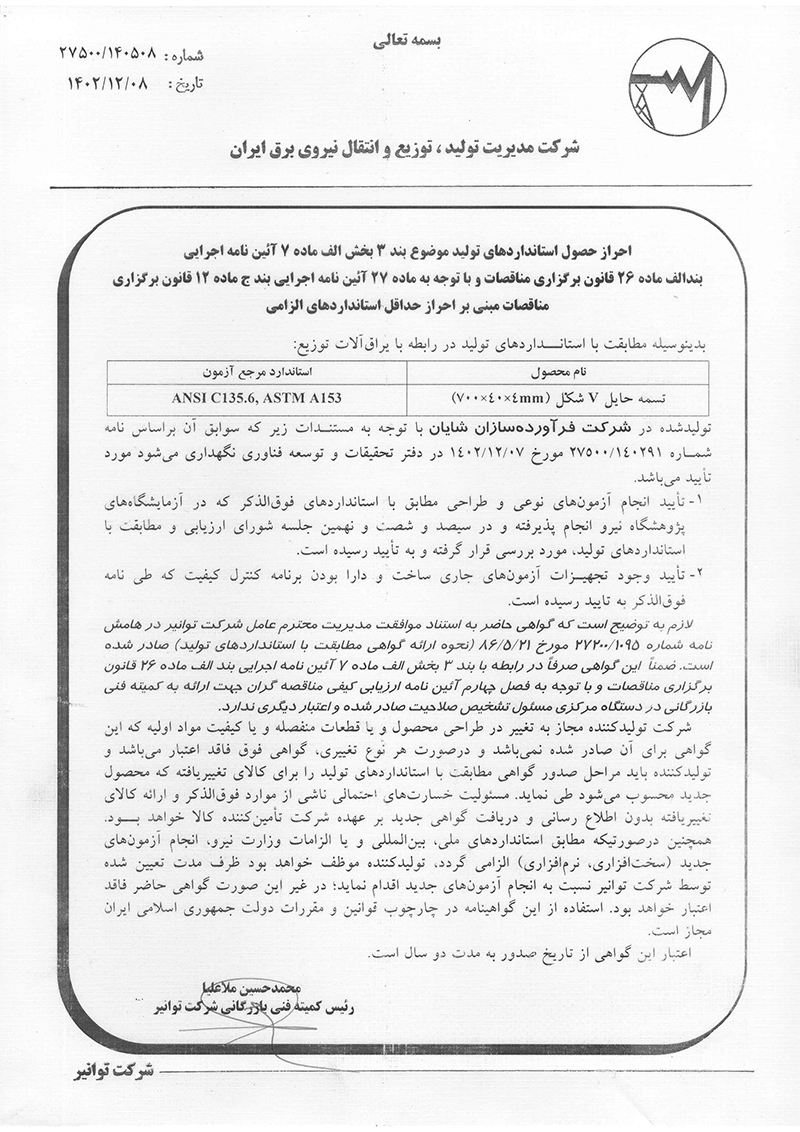 بسمه تعالی
شماره : ۲۷۵۰۰/۱۴۰۵۰۸
تاریخ : ۱۴۰۲/۱۲/۰۸
شرکت مدیریت تولید ، توزیع و انتقال نیروی برق ایران
احراز حصول استانداردهای تولید موضوع بند ۳ بخش الف ماده ۷ آئین نامه اجرایی
بندالف ماده ۲۶ قانون برگزاری مناقصات و با توجه به ماده ۲۷ آئین نامه اجرایی بند ج ماده ۱۲ قانون برگزاری
مناقصات مبنی بر احراز حداقل استانداردهای الزامی
بدینوسیله مطابقت با استانـــدارد‌های تولید در رابطه با یراق‌آلات توزیع:
نام محصول
استاندارد مرجع آزمون
تسمه حایل V شکل (۷۰۰×٤۰×٤mm)
ANSI C135.6, ASTM A153
تولیدشده در شرکت فرآورده‌سازان شایان با توجه به مستنـدات زیر که سوابق آن براساس نامه
شمـاره ۲۷۵۰۰/۱۴۰۲۹۱ مورخ ۱۴۰۲/۱۲/۰۷ در دفتر تحقیقات و توسعه فناوری نگهداری می‌شود مورد
تأیید می‌باشد.
۱- تأیید انجام آزمون‌های نوعی و طراحی مطابق با استانداردهای فوق‌الذکر که در آزمایشگاه‌های
پژوهشگاه نیرو انجام پذیرفته و در سیصد و شصت و نهمین جلسه شورای ارزیابی و مطابقت با
استانداردهای تولید، مورد بررسی قرار گرفته و به تأیید رسیده است.
۲- تأیید وجود تجهیـزات آزمون‌های جاری ساخت و دارا بودن برنامه کنترل کیفیت که طی نامه
فوق‌الذکر به تایید رسیده است.
لازم به توضیح است که گواهی حاضر به استناد موافقت مدیریت محترم عامل شرکت توانیر در هامش
نامه شماره ۲۷۲۰۰/۱۰۹۵ مورخ ۸۶/۵/۲۱ (نحوه ارائه گواهی مطابقت با استانداردهای تولید) صادر شده
است. ضمناً این گواهی صرفاً در رابطه با بند ۳ بخش الف ماده ۷ آئین نامه اجرایی بند الف ماده ۲۶ قانون
برگزاری مناقصات و با توجه به فصل چهارم آئین نامه ارزیابی کیفی مناقصه گران جهت ارائه به کمیته فنی
بازرگانی در دستگاه مرکزی مسئول تشخیص صلاحیت صادر شده و اعتبار دیگری ندارد.
شرکت تولیدکننده مجاز به تغییر در طراحی محصول و یا قطعات منفصله و یا کیفیت مواد اولیه که این
گواهی برای آن صادر شده نمی‌باشد و درصورت هر نوع تغییری، گواهی فوق فاقد اعتبار می‌باشد و
تولیدکننده باید مراحل صدور گواهی مطابقت با استانداردهای تولید را برای کالای تغییریافته که محصول
جدید محسوب می‌شود طی نماید. مسئولیت خسارت‌های احتمالی ناشی از موارد فوق‌الذکر و ارائه کالای
تغییریافته بدون اطلاع رسانی و دریافت گواهی جدید بر عهده شرکت تأمین‌کننده کالا خواهد بـــود.
همچنین درصورتیکه مطابق استانداردهای ملی، بین‌المللی و یا الزامات وزارت نیرو، انجام آزمون‌های
جدید (سخت‌افزاری، نرم‌افزاری) الزامی گردد، تولیدکننده موظف خواهد بود ظرف مدت تعیین شده
توسط شرکت توانیر نسبت به انجام آزمون‌های جدید اقدام نماید؛ در غیر این صورت گواهی حاضر فاقد
اعتبار خواهد بود. استفاده از این گواهینامه در چارچوب قوانین و مقررات دولت جمهوری اسلامی ایران
مجاز است.
اعتبار این گواهی از تاریخ صدور به مدت دو سال است.
محمدحسین ملاعلیا
رئیس کمیته فنی بازرگانی شرکت توانیر
شرکت توانیر